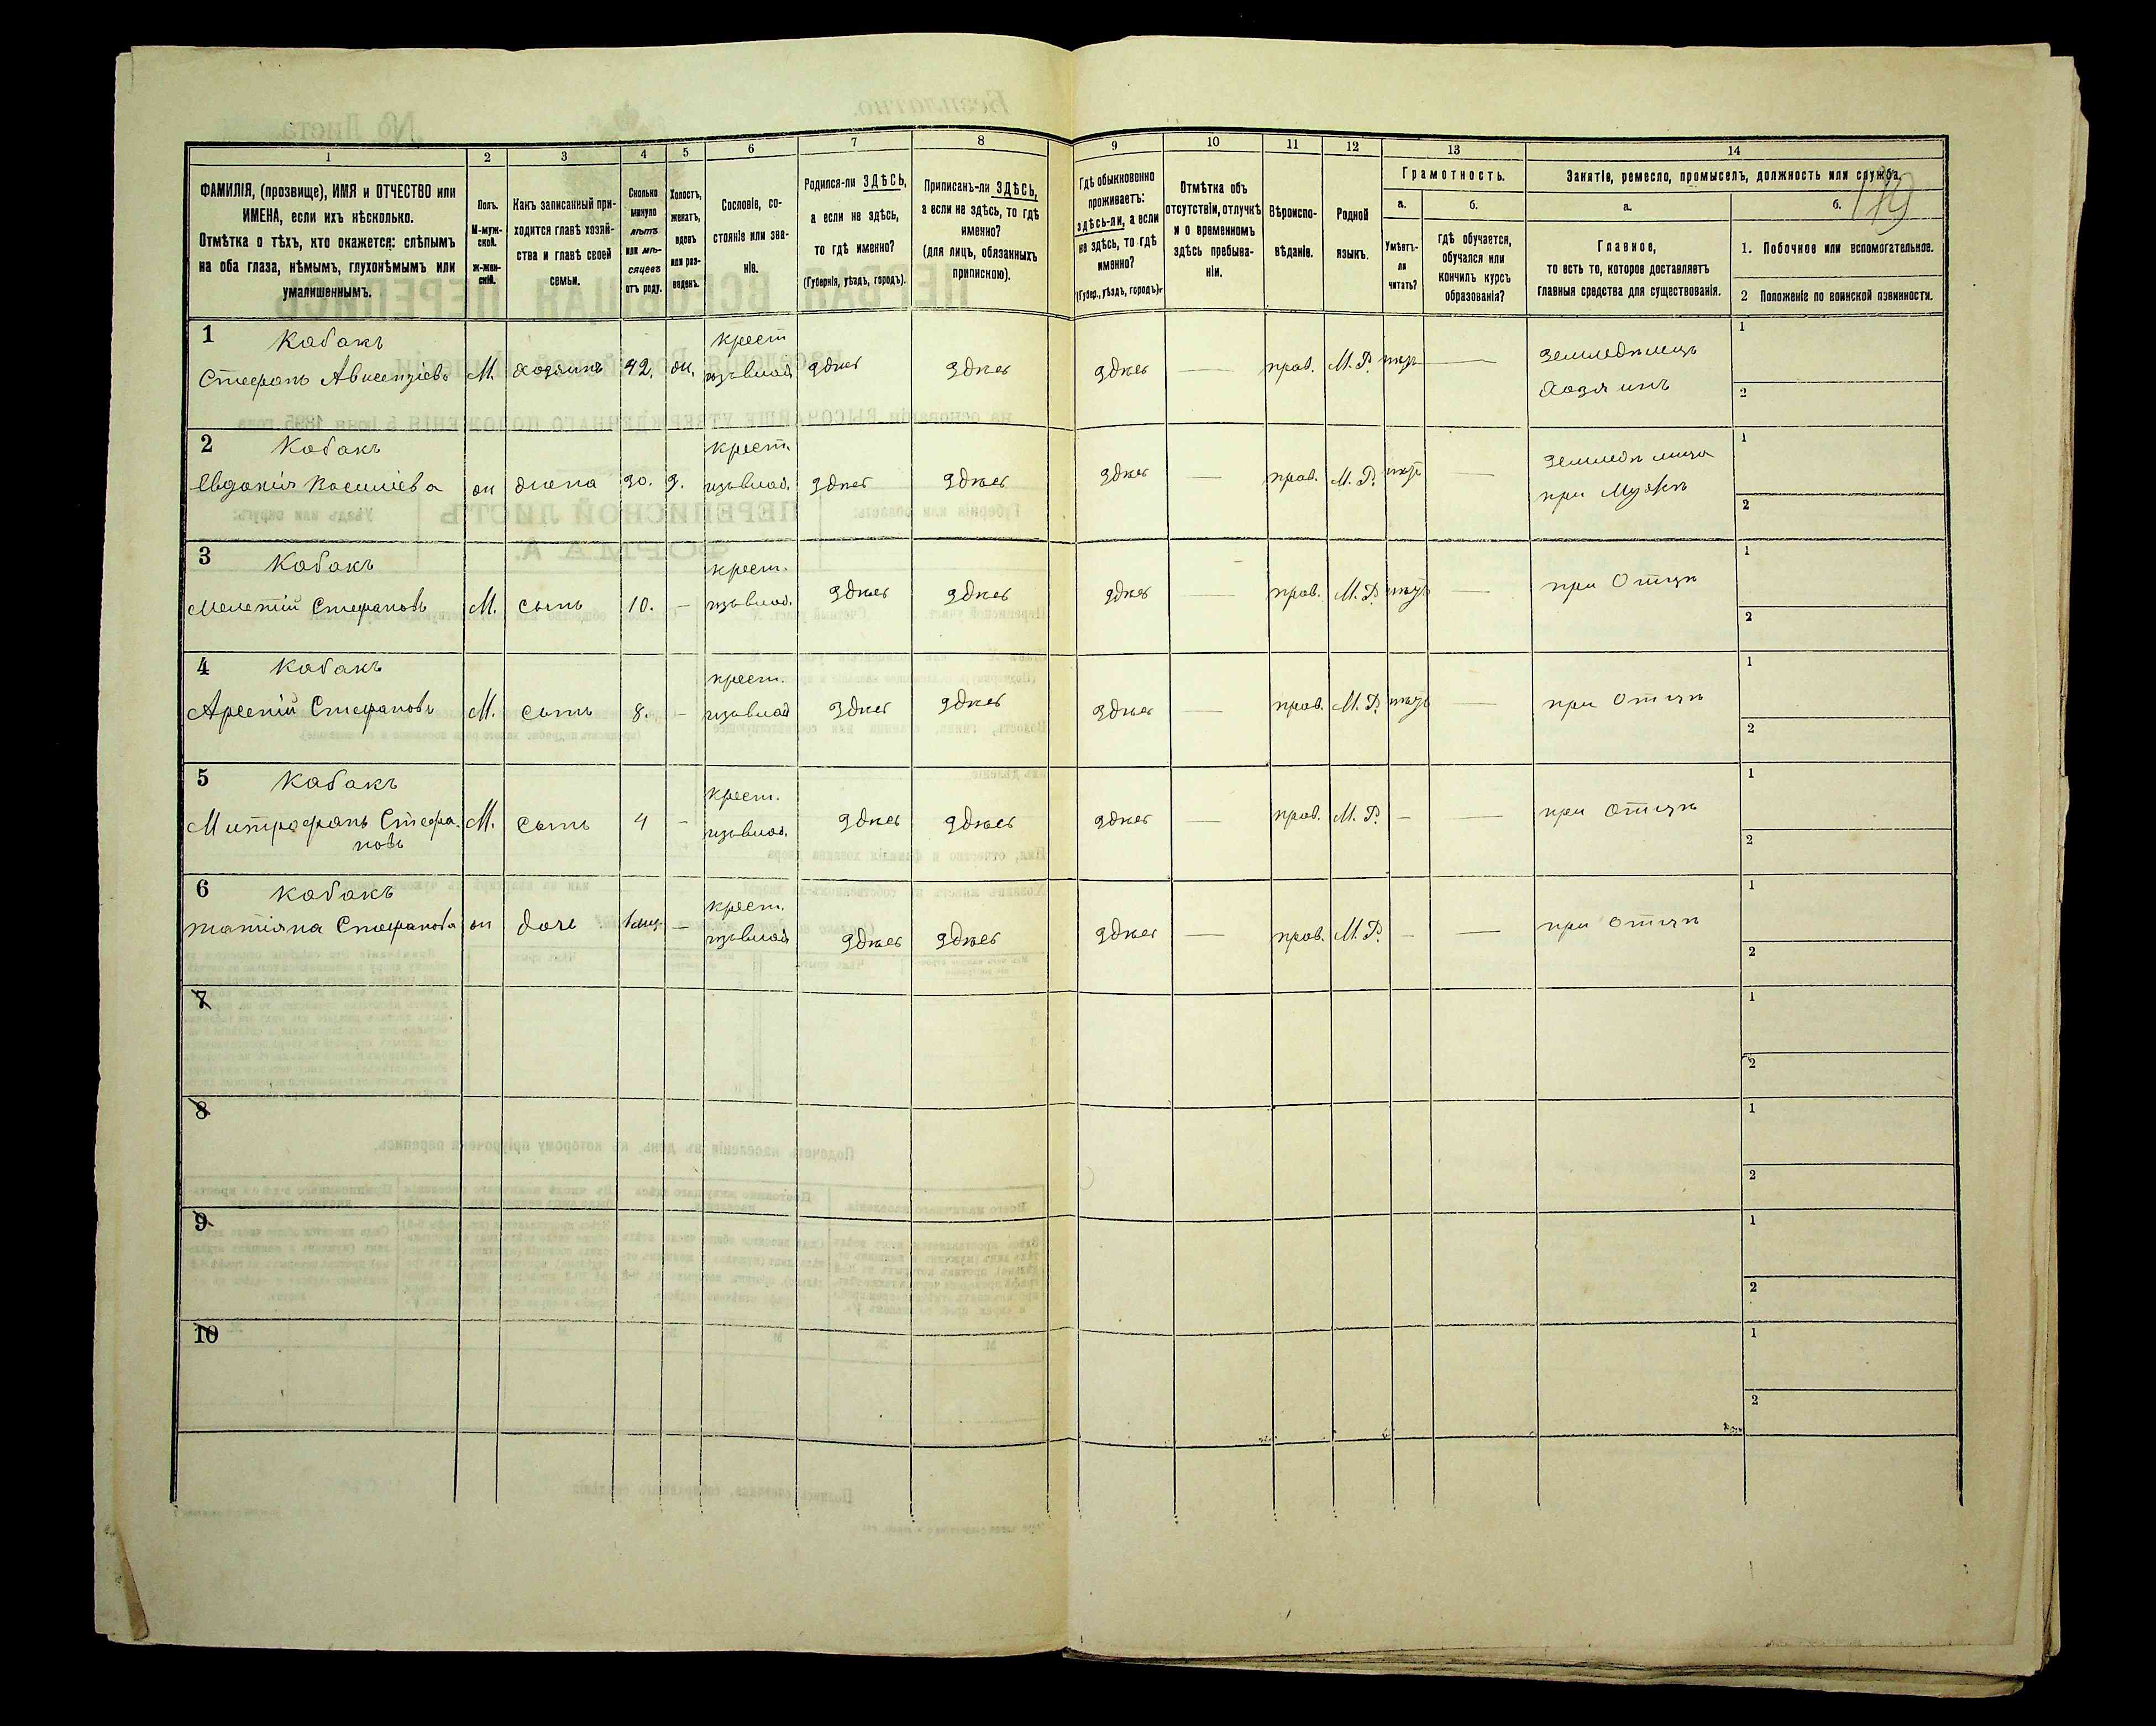 1 2 3 4 5 6 7 8 9 10 11 12 13 14
ФАМИЛІЯ, (прозвище), ИМЯ и ОТЧЕСТВО или
ИМЕНА, если ихъ нѣсколько.
Отмѣтка о тѣхъ, кто окажется: слѣпымъ
на оба глаза, нѣмымъ, глухонѣмымъ или
умалишеннымъ.
Полъ.
М-муж-
ской.
ж-жен-
скій.
Какъ записанный при-
ходится главѣ хозяй-
ства и главѣ своей
семьи.
Сколько
минуло
лѣтъ
или мѣ-
сяцевъ
отъ роду.
Холостъ,
женатъ,
вдовъ
или раз-
веденъ.
Сословіе, со-
стояніе или зва-
ніе.
Родился-ли ЗДѢСЬ,
а если не здѣсь,
то гдѣ именно?
(Губернія, уѣздъ, городъ).
Приписанъ-ли ЗДѢСЬ,
а если не здѣсь, то гдѣ
именно?
(для лицъ, обязанныхъ
припискою).
Гдѣ обыкновенно
проживаетъ:
здѣсь-ли, а если
не здѣсь, то гдѣ
именно?
(Губер., уѣздъ, городъ).
Отмѣтка объ
отсутствіи, отлучкѣ
и о временномъ
здѣсь пребыва-
ніи.
Вѣроиспо-
вѣданіе.
Родной
языкъ.
Грамотность.
а.
Умѣетъ-
ли
читать?
б.
гдѣ обучается,
обучался или
кончилъ курсъ
образованія?
Занятіе, ремесло, промыселъ, должность или служба.
а.
Главное,
то есть то, которое доставляетъ
главныя средства для существованія.
б.
1. Побочное или вспомогательное.
2 Положеніе по воинской повинности.
1 Кабакъ крест Земледѣлецъ 1
Стефанъ Авксентіевъ М. хозяинъ 42. ж. изъ влад здѣсь здѣсь здѣсь — прав. М. Р. — Хозяинъ 2
2 Кабакъ крест. Земледѣлица 1
Евдокія Василіева ж жена з. изъ влад. здѣсь здѣсь здѣсь — прав. М. Р. — при Мужѣ 2
3 Кабакъ крест. 1
Мелетій Стефановъ М. сынъ 10. — изъ влад. здѣсь здѣсь здѣсь — прав. М. Р. — при Отцѣ 2
4 Кабакъ крест. 1
Арсеній Стефановъ М. сынъ 8. — изъ влад здѣсь здѣсь здѣсь — прав. М. Р. — при Отцѣ 2
5 Кабакъ крест. 1
Митрофанъ Стефа- М. сынъ 4 — изъ влад. здѣсь здѣсь здѣсь — прав. М. Р. — — при Отцѣ 2
новъ
6 Кабакъ крест. 1
Татіяна Стефанова ж дочь 1 мѣс. — изъ влад здѣсь здѣсь здѣсь — прав. М. Р. — — при Отцѣ 2
7 1
2
8 1
2
9 1
2
10 1
2